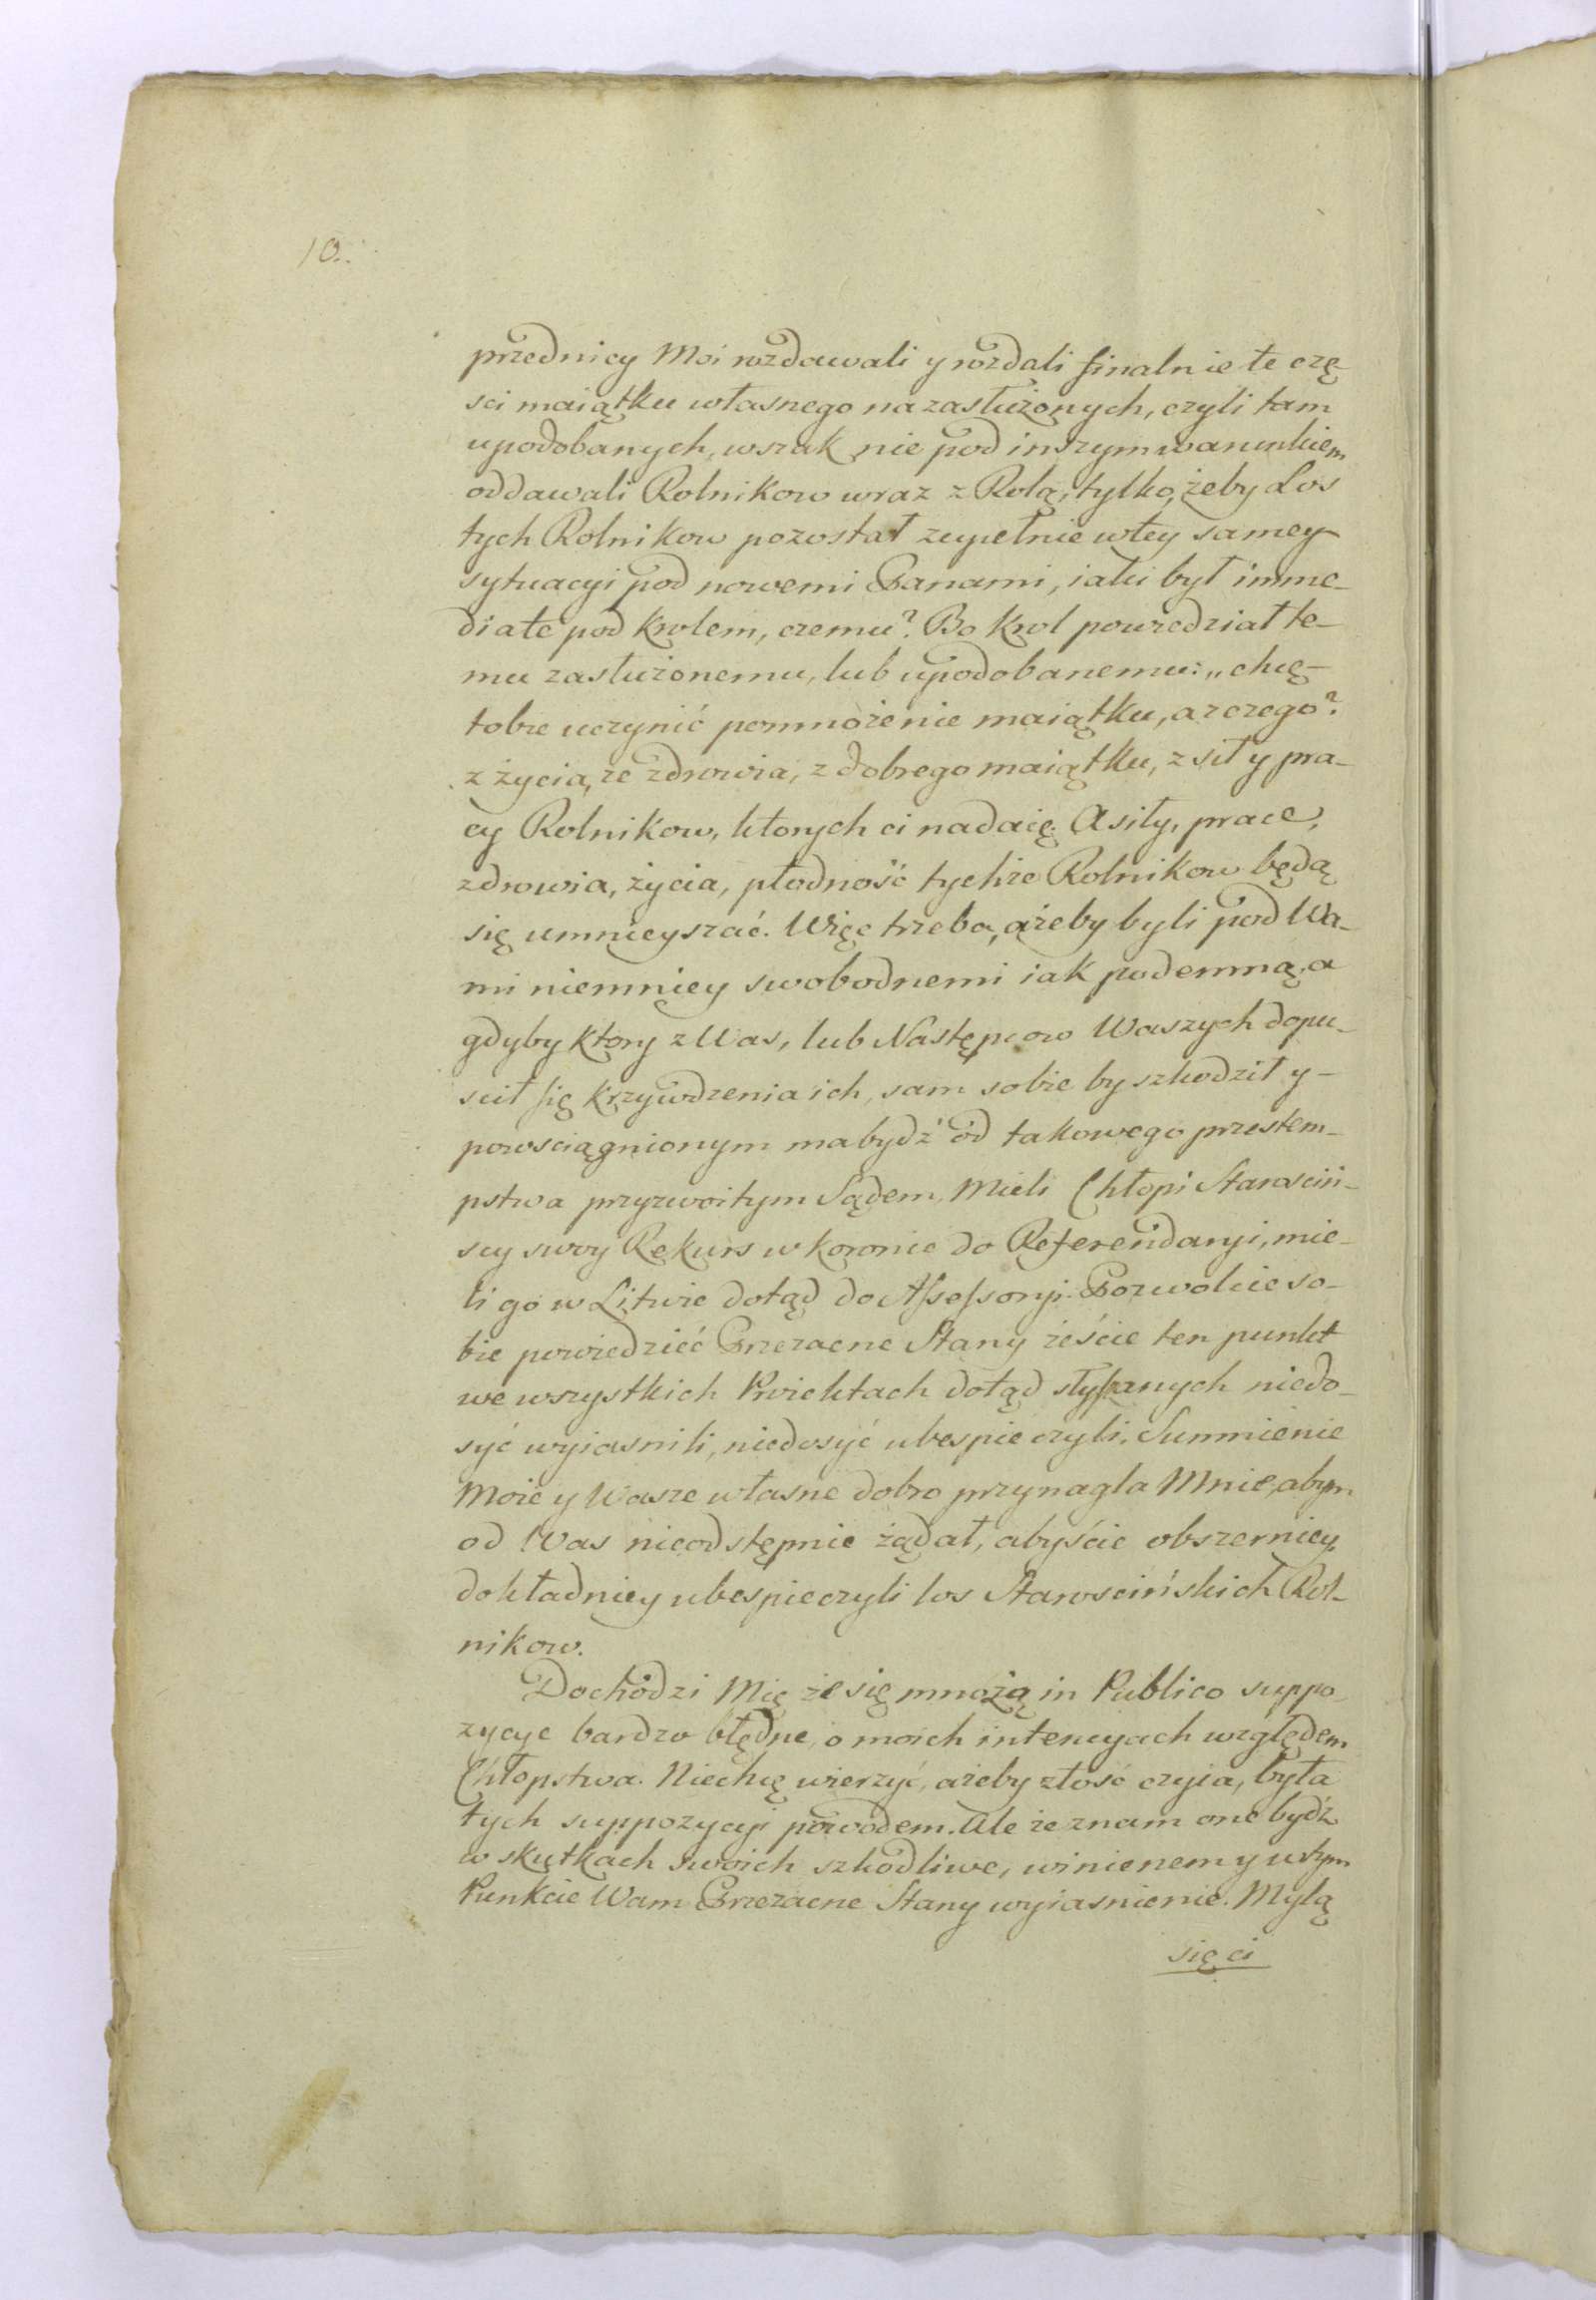 10.
przednicy Moi rozdawali y rozdali finalnie te czę-
sci maiątku własnego na zasłużonych, czyli tam
upodobanych, wszak nie pod inszym warunkiem
oddawali Rolnikow wraz z Rolą, tylko, żeby Los
tych Rolnikow pozostał zupełnie w tey samey
sytuacyi pod nowemi Panami, iaki był imme-
diate pod Krolem, czemu? Bo Krol powiedział te-
mu zasłużonemu, lub upodobanemu: „chcę-
tobie uczynić pomnożenie maiątku, a z czego?
z życia, ze zdrowia, z dobrego maiątku, z sił y pra-
cy Rolnikow, ktorych ci nadaię. A siły, prace,
zdrowia, życia, płodność tychże Rolnikow będą
się umnieyszać. Więc trzeba, ażeby byli pod Wa-
mi niemniey swobodnemi iak podemną, a
gdyby ktory z Was, lub Następcow Waszych dopu-
scił się krzywdzenia ich, sam sobie by szkodził y-
powsciągnionym ma bydź od takowego przestem-
pstwa przyzwoitym Sądem. Mieli Chłopi Starosciń-
scy swoy Rekurs w Koronie do Referendaryi, mie-
li go w Litwie dotąd do Assessoryi. Pozwolcie so-
bie powiedzieć Przezacne Stany żeście ten punkt
we wszystkich Proiektach dotąd słyszanych niedo-
syć wyiasnili, niedosyć ubespieczyli. Summienie
Moie y Wasze własne dobro przynagla Mnie, abym
od Was nieodstępnie żądał, abyście obszerniey,
dokładniey ubespieczyli los Starościńskich Rol-
nikow.
Dochodzi Mię że się mnożą in Publico suppo-
zycye bardzo błędne, o moich intencyach względem
Chłopstwa. Niechcę wierzyć, ażeby złość czyia, była
tych suppozycyi powodem. Ale że znam one bydź
w skutkach swoich szkodliwe, winienem y w tym
Punkcie Wam Przezacne Stany wyiasnienie. Mylą
się ci